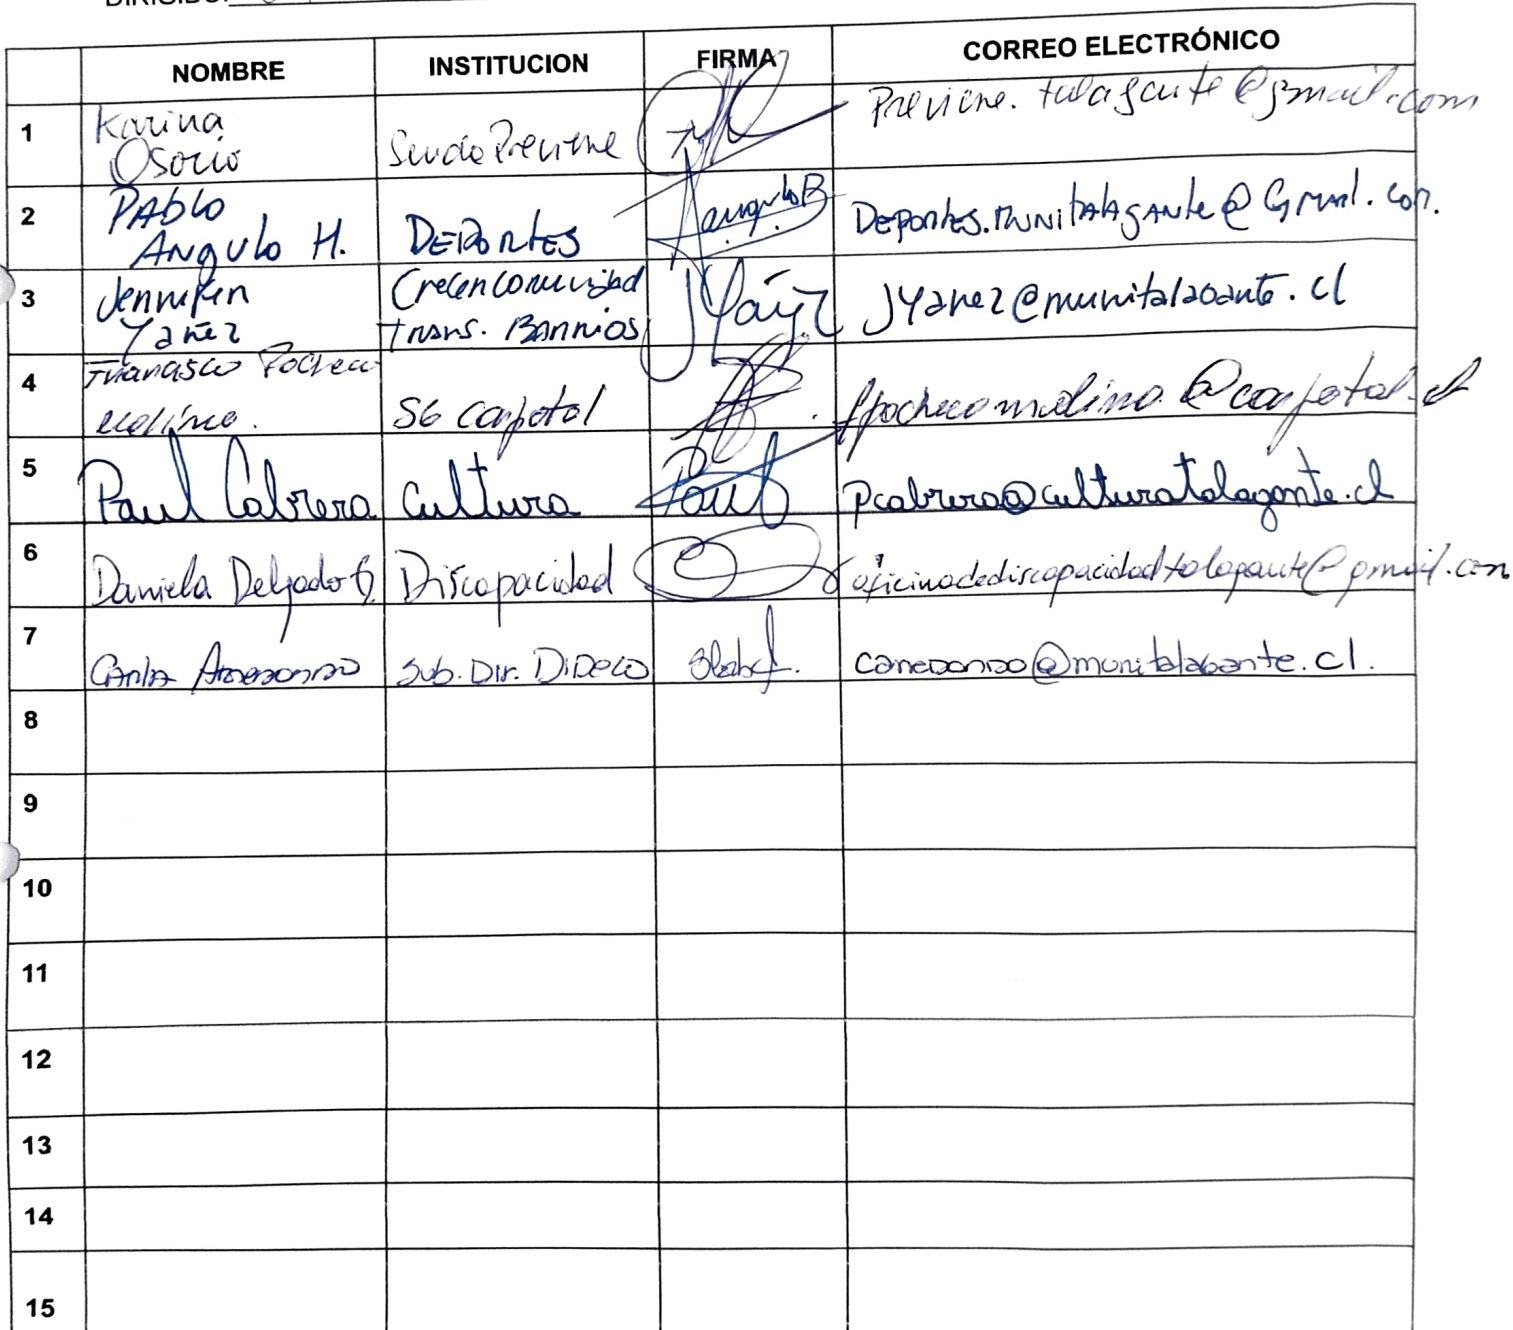 NOMBRE INSTITUCION FIRMA CORREO ELECTRÓNICO
1 Karina Osorio Senda Previene Previene.talagante@gmail.com
2 PABLO ANGULO H. DEPORTES Angulo B DEPORTES.MUNITALAGANTE@Gmail.com.
3 Jennifer Yañez Crecer en Comunidad Trans. BARRIOS JYáñez JYanez@munitalagante.cl
4 Francisco Pacheco Molina. S6 Carfetal fpachecomolina@carfetal.cl
5 Paul Cabrera Cultura Paul pcabrera@culturatalagante.cl
6 Daniela Delgado G. Discapacidad oficinadediscapacidadtalagante@gmail.com
7 Carla Arredondo Sub. Dir. DIDECO carredondo@munitalagante.cl.
8
9
10
11
12
13
14
15